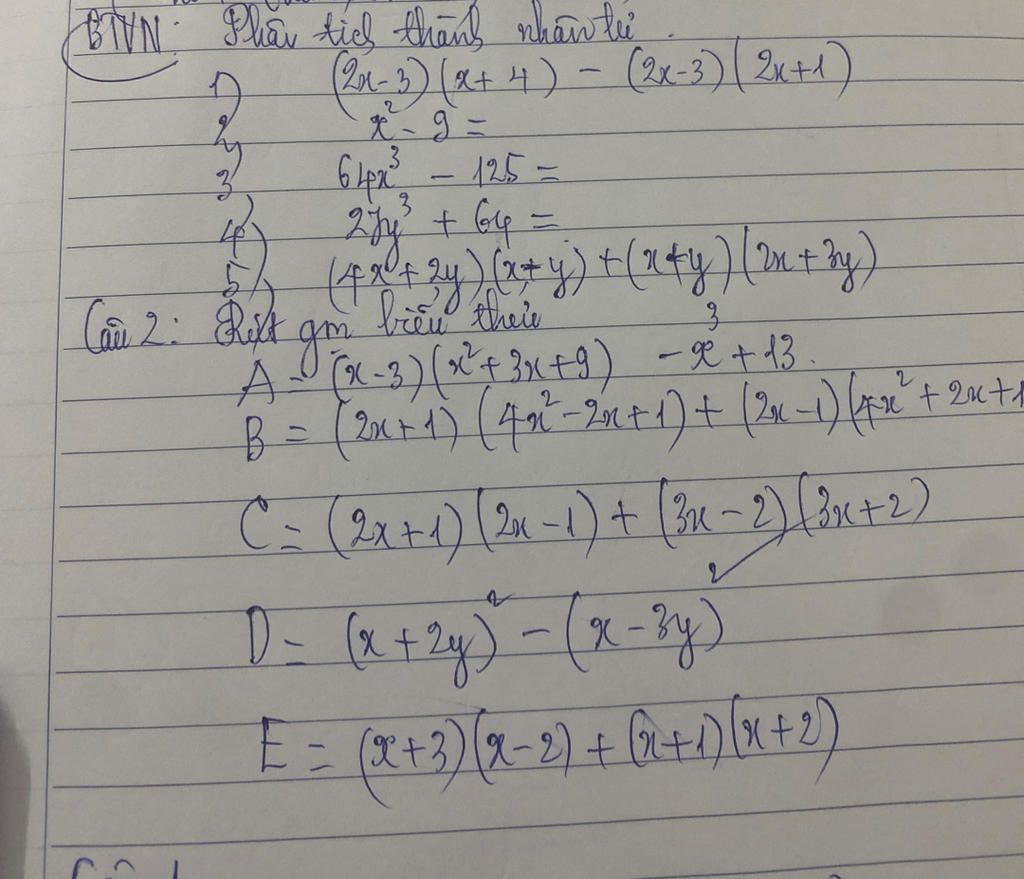 BTVN: Phân tích thành nhân tử.
1) (2x-3)(x+4) - (2x-3)(2x+1)
2) x² - 9 =
3) 64x³ - 125 =
4) 27y³ + 64 =
5) (4x+2y)(x+y) + (x+y)(2x+3y)
Câu 2: Rút gọn biểu thức
A = (x-3)(x²+3x+9) - x³ + 13.
B = (2x+1)(4x²-2x+1) + (2x-1)(4x²+2x+1
C = (2x+1)(2x-1) + (3x-2)(3x+2)
D = (x+2y)² - (x-3y)²
E = (x+3)(x-2) + (x+1)(x+2)